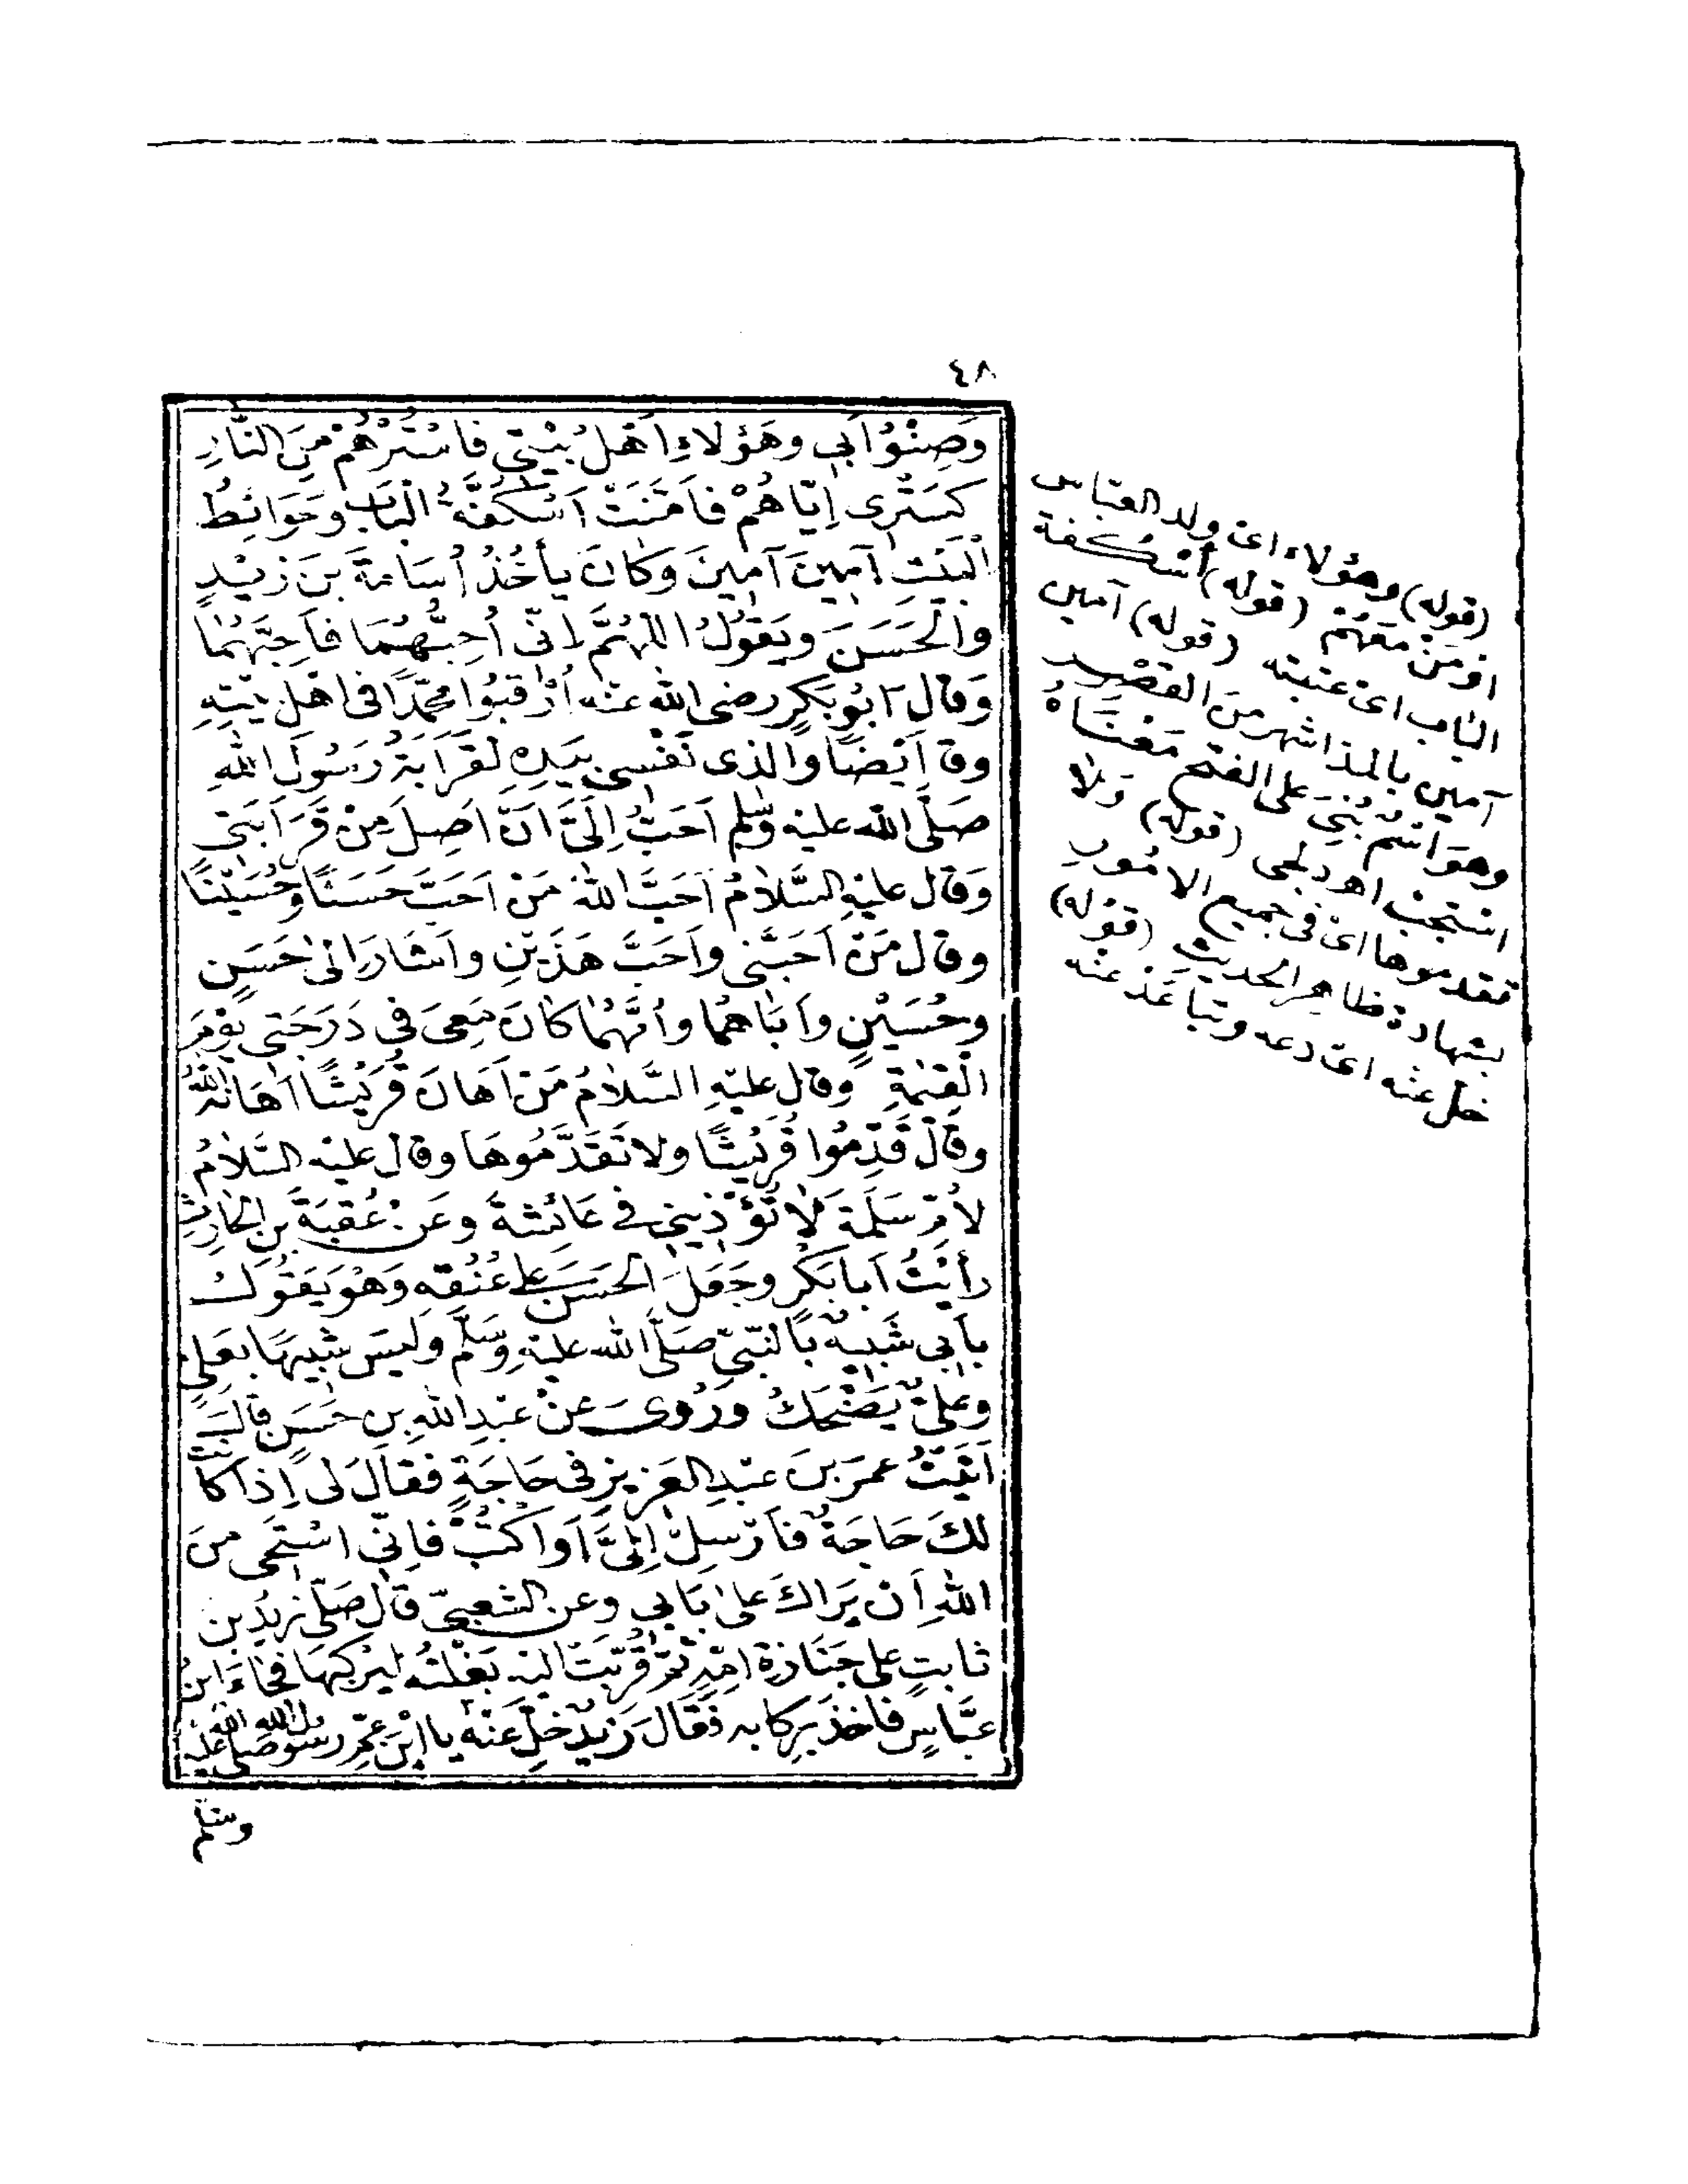 ٤٨
وَصِنْوُ اَبِى وهَؤُلاءِ اَهْلُ بَيْتِى فاسْتُرْهُمْ مِنَ النَّارِ
كسَتْرِى اِيّاهُمْ فاَمَّنَتْ اَسْكُفَّةُ البَابِ وحَوَائِطُ
الْبَيْتِ آمِينَ آمِينَ وَكانَ يأخُذُ اُسَامَةَ بنَ زيْدٍ
والْحَسَنَ ويَقُولُ اللهُمَّ اِنّى اُحِبُّهُمَا فَاَحِبَّهُمَا
وَقال اَبُو بَكرٍ رضى الله عنْه اُرْقبُوا مُحمّدًا فى اهْلِ بَيْتِهِ
وقا اَيْضًا والذى نَفْسِى بيَدِهِ لَقَرَابَةُ رَسُولِ اللهِ
صَلَّى الله عليْه وسلم اَحَبُّ اِلَىَّ اَنْ اَصِلَ مِنْ قَرَابَتى
وَقال عليْهِ السَّلامُ اَحَبَّ اللهُ مَنْ اَحَبَّ حَسَنًا وحُسَيْنًا
وقال مَنْ اَحَبَّنِى واَحَبَّ هَذَيْنِ واَشَارَ الى حَسَنٍ
وحُسَيْنٍ واَبَاهُما واُمَّهُمَا كانَ مَعِىَ فى دَرَجَتِى يَوْمَ
القِيٰمةِ وقال عليْهِ السَّلامُ مَنْ اَهانَ قُرَيْشًا اَهَانَهُ اللهُ
وقالَ قَدِّمُوا قُرَيْشًا ولا تَقَدَّمُوهَا وقال عليْه السَّلامُ
لاُمِّ سَلَمةَ لا تُؤْذِينِى فى عَائِشةَ وعَن عُقبَةَ بنِ الحَارِثِ
رأيْتُ اَبا بَكْرٍ وجَعَلَ الحَسَنَ على عُنُقِهِ وَهْوَ يَقُولُ
بأبِى شَبِيهٌ بالنَّبِىِّ صَلَّى الله عليْهِ وسَلَّمَ وليسَ شبِيهًا بعَلِىٍ
وعلىٌّ يَضْحَكُ ورُوِىَ عنْ عبْدِ اللهِ بنِ حَسَنٍ قالَ
اَتَيْتُ عمرَ بنَ عبْدِ العَزِيزِ فى حَاجَةٍ فقالَ لى اِذا كانَتْ
لكَ حَاجَةٌ فاَرْسِلْ اِلَىَّ اَو اكْتُبْ فاِنّى اسْتَحِى منَ
اللهِ اَن يَرَاكَ على بَابِى وعن الشعبىّ قال صَلَّى زيدُ بن
ثابتٍ على جَنَازةِ امّهِ ثمّ قُرّبَتْ اليْه بَغْلتُه ليرْكبَهَا فجَاءَ ابنُ
عبَّاسٍ فاخَذَ بِرِكابه فقالَ زيْدٌ خلِّ عنْه يا ابْنَ عمِّ رسول الله صلى الله عليه
وسلّم
(قوله) وهؤلاء اى ولد العباس
او مَنْ معَهُمْ (قوله) اُسْكفة
الباب اى عتبته (قوله) آمين
آمين بالمد اشهر من القصْر
وهو اسْم بُنِىَ على الفتح مَعْناهُ
استجب اهـ دلجى (قوله) وَلا
تقدموها اى فى جميع الامُور
بشهادة ظاهر الحديث (قوله)
خل عنْه اى دعه وتباعَدْ عنْه